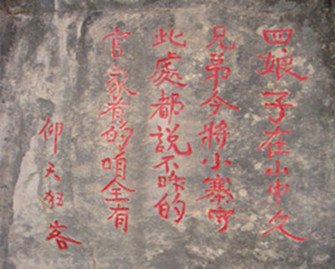 四娘子在山中久
兄弟今将小寨守
此處都說不咋的
官家有的咱全有
仰天狂客